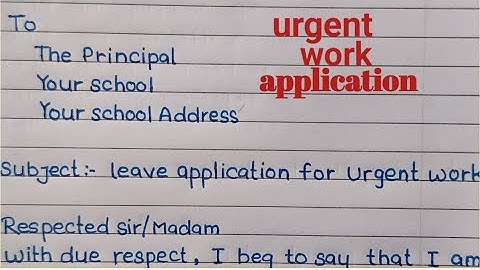 To
The Principal
Your school
Your school Address
urgent
work
application
Subject:- leave application for Urgent work
Respected sir/Madam
with due respect, I beg to say that I am